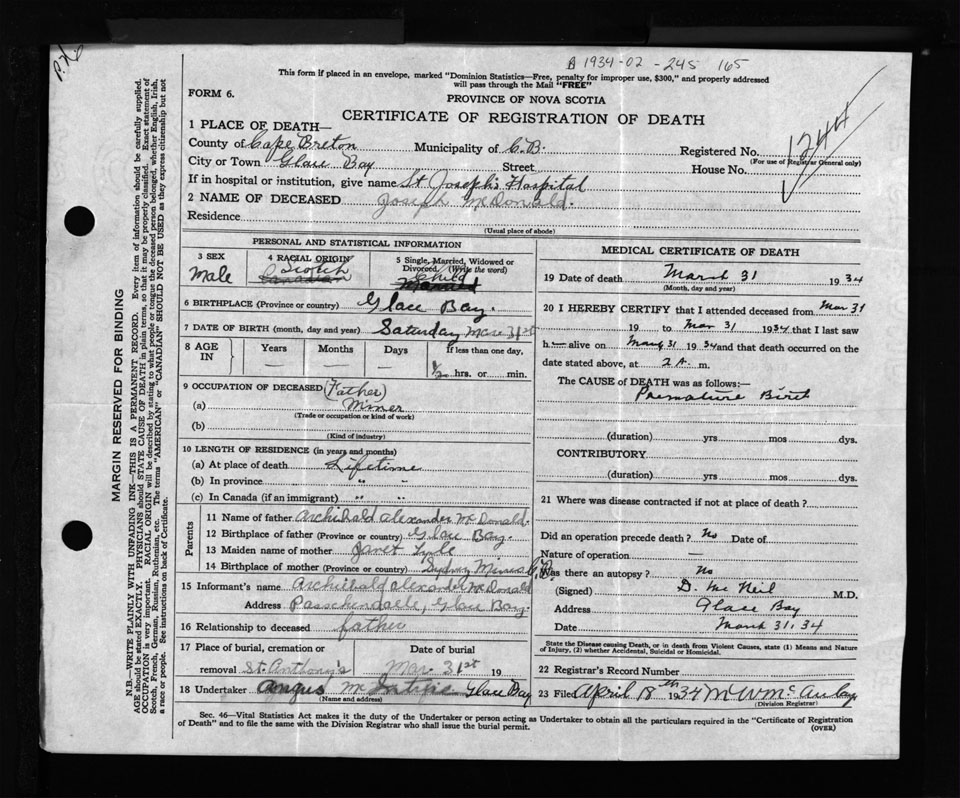 A 1934-02-245 165
This form if placed in an envelope, marked "Dominion Statistics—Free, penalty for improper use, $300," and properly addressed
will pass through the Mail "FREE"
FORM 6.
PROVINCE OF NOVA SCOTIA
CERTIFICATE OF REGISTRATION OF DEATH
1244
1 PLACE OF DEATH—
County of Cape Breton Municipality of C.B. Registered No.
(For use of Registrar General only)
City or Town Glace Bay Street House No.
If in hospital or institution, give name St Joseph's Hospital
2 NAME OF DECEASED Joseph McDonald.
Residence
(Usual place of abode)
PERSONAL AND STATISTICAL INFORMATION
3 SEX 4 RACIAL ORIGIN 5 Single, Married, Widowed or Divorced, (Write the word)
Male Scotch Canadian Child Married
6 BIRTHPLACE (Province or country) Glace Bay.
7 DATE OF BIRTH (month, day and year) Saturday Mar 31st
8 AGE IN Years Months Days If less than one day,
1/2 hrs. or min.
9 OCCUPATION OF DECEASED (Father)
(a) Miner
(Trade or occupation or kind of work)
(b)
(Kind of industry)
10 LENGTH OF RESIDENCE (in years and months)
(a) At place of death Lifetime
(b) In province " "
(c) In Canada (if an immigrant) " "
Parents
11 Name of father Archibald Alexander McDonald.
12 Birthplace of father (Province or country) Glace Bay.
13 Maiden name of mother Janet
14 Birthplace of mother (Province or country) Sydney Mines C.B.
15 Informant's name Archibald Alexander McDonald
Address Passchendaele, Glace Bay.
16 Relationship to deceased father
17 Place of burial, cremation or Date of burial
removal St. Anthony's Mar 31st 19
18 Undertaker Angus McIntyre Glace Bay
(Name and address)
MEDICAL CERTIFICATE OF DEATH
19 Date of death March 31 1934
(Month, day and year)
20 I HEREBY CERTIFY that I attended deceased from Mar 31
19 to Mar 31 1934 that I last saw
h alive on Mar 31 1934 and that death occurred on the
date stated above, at 2 A. m.
The CAUSE OF DEATH was as follows:—
Premature Birth
(duration) yrs mos dys.
CONTRIBUTORY
(duration) yrs mos dys.
21 Where was disease contracted if not at place of death?
Did an operation precede death? No Date of
Nature of operation —
Was there an autopsy? No
(Signed) D. McNeil M.D.
Address Glace Bay
Date March 31, 34
State the Disease causing Death, or in death from Violent Causes, state (1) Means and Nature
of Injury, (2) whether Accidental, Suicidal or Homicidal.
22 Registrar's Record Number
23 Filed April 18th 1934 M W McAulay
(Division Registrar)
Sec. 46—Vital Statistics Act makes it the duty of the Undertaker or person acting as Undertaker to obtain all the particulars required in the "Certificate of Registration
of Death" and to file the same with the Division Registrar who shall issue the burial permit.
(OVER)
MARGIN RESERVED FOR BINDING
N.B.—WRITE PLAINLY WITH UNFADING INK—THIS IS A PERMANENT RECORD. Every item of information should be carefully supplied.
AGE should be stated EXACTLY. PHYSICIANS should STATE CAUSE OF DEATH in plain terms, so that it may be properly classified. Exact statement of
OCCUPATION is very important. RACIAL ORIGIN will be described by stating to what people or tongue the deceased person belonged, whether English, Irish,
Scotch, French, German, Russian, Ruthenian, etc. The terms "AMERICAN" or "CANADIAN" SHOULD NOT BE USED as they express citizenship but not
a race or people. See instructions on back of Certificate.